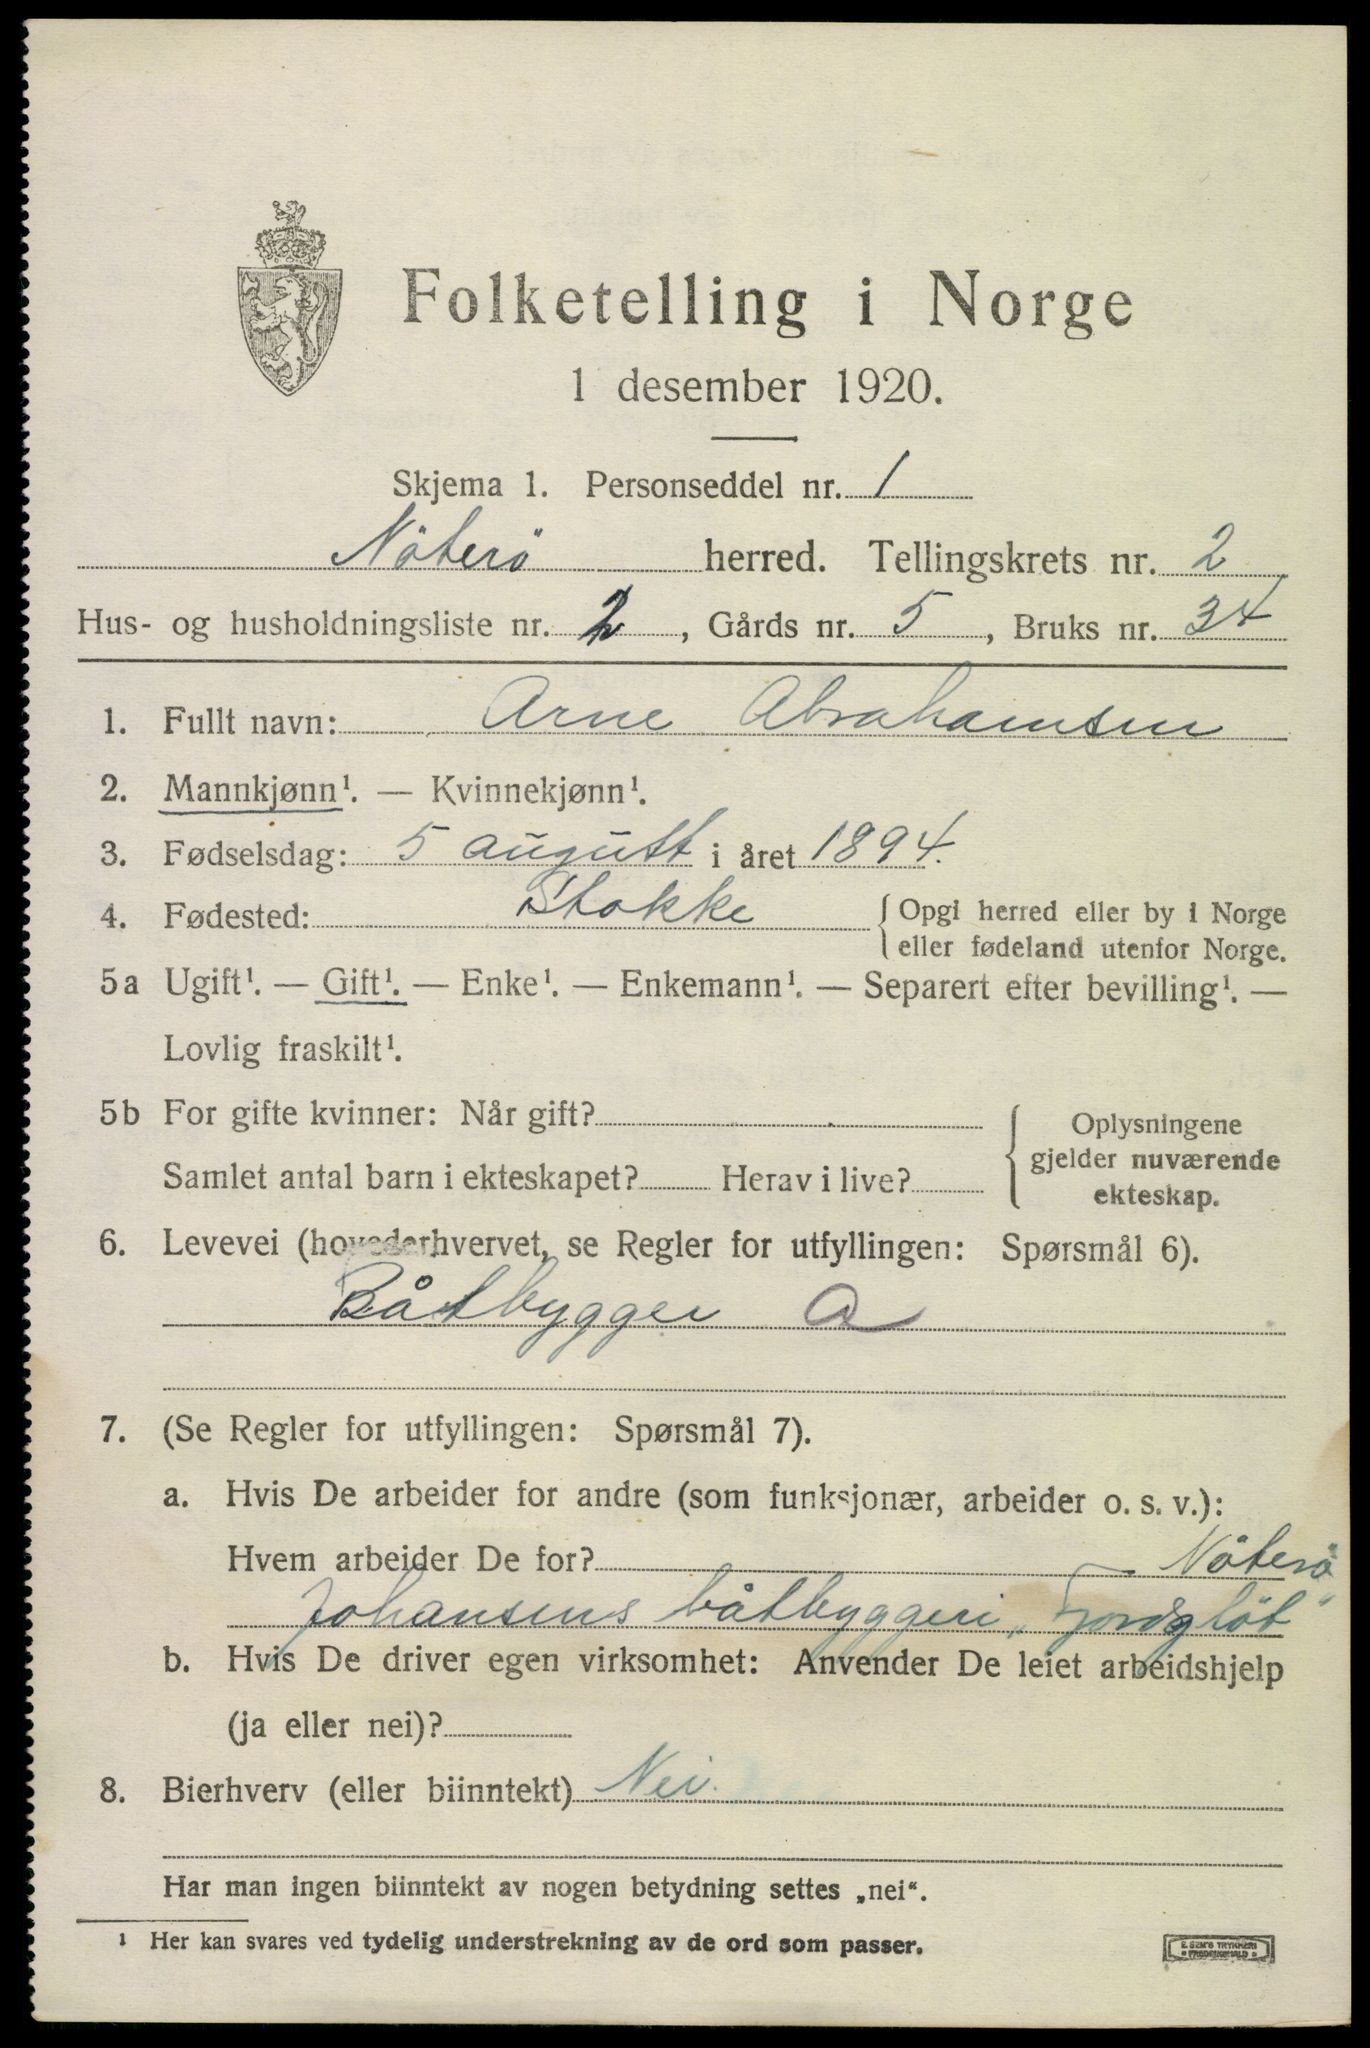 Folketelling i Norge
1 desember 1920.
Skjema 1. Personseddel nr. 1
Nöterö herred. Tellingskrets nr. 2
Hus- og husholdningsliste nr. 2, Gårds nr. 5, Bruks nr. 34
1. Fullt navn: Arne Abrahamsen
2. Mannkjønn¹. — Kvinnekjønn¹.
3. Fødselsdag: 5 august i året 1894.
4. Fødested: Stokke { Opgi herred eller by i Norge
eller fødeland utenfor Norge.
5a Ugift¹. — Gift¹. — Enke¹. — Enkemann¹. — Separert efter bevilling¹. —
Lovlig fraskilt¹.
5b For gifte kvinner: Når gift?
Samlet antal barn i ekteskapet? Herav i live?
{ Oplysningene
gjelder nuværende
ekteskap.
6. Levevei (hovederhvervet, se Regler for utfyllingen: Spørsmål 6).
Båtbygger a
7. (Se Regler for utfyllingen: Spørsmål 7).
a. Hvis De arbeider for andre (som funksjonær, arbeider o. s. v.):
Hvem arbeider De for? Nöterö
Johansens båtbyggeri
b. Hvis De driver egen virksomhet: Anvender De leiet arbeidshjelp
(ja eller nei)?
8. Bierhverv (eller biinntekt) Nei.
Har man ingen biinntekt av nogen betydning settes „nei“.
1 Her kan svares ved tydelig understrekning av de ord som passer.
E. SEM'S TRYKKERI
FREDRIKSHALD